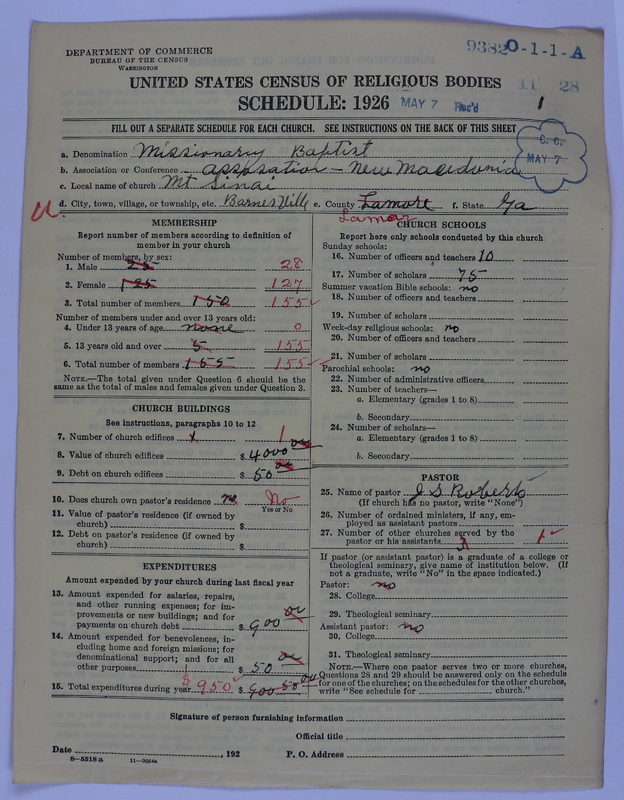 DEPARTMENT OF COMMERCE
BUREAU OF THE CENSUS
WASHINGTON
9382 O-1-1-A
11 28
UNITED STATES CENSUS OF RELIGIOUS BODIES
SCHEDULE: 1926 MAY 7 Rec'd 1
FILL OUT A SEPARATE SCHEDULE FOR EACH CHURCH. SEE INSTRUCTIONS ON THE BACK OF THIS SHEET
C. C.
MAY 7
a. Denomination Missionary Baptist
b. Association or Conference New Macedonia
c. Local name of church Mt Sinai
d. City, town, village, or township, etc. Barnesville e. County Lamore f. State Ga
Lamar
MEMBERSHIP
Report number of members according to definition of
member in your church
Number of members, by sex:
1. Male 25 28
2. Female 125 127
3. Total number of members 150 155
Number of members under and over 13 years old:
4. Under 13 years of age none 0
5. 13 years old and over 5 155
6. Total number of members 155 155
NOTE.—The total given under Question 6 should be the
same as the total of males and females given under Question 3.
CHURCH BUILDINGS
See instructions, paragraphs 10 to 12
7. Number of church edifices 1 1
8. Value of church edifices $ 4000 00
9. Debt on church edifices $ 50 00
10. Does church own pastor's residence no No
Yes or No
11. Value of pastor's residence (if owned by
church) $
12. Debt on pastor's residence (if owned by
church) $
EXPENDITURES
Amount expended by your church during last fiscal year
13. Amount expended for salaries, repairs,
and other running expenses; for im-
provements or new buildings; and for
payments on church debt $ 900 00
14. Amount expended for benevolences, in-
cluding home and foreign missions; for
denominational support; and for all
other purposes $ 50 00
15. Total expenditures during year $950 $ 900 50 00
CHURCH SCHOOLS
Report here only schools conducted by this church
Sunday schools:
16. Number of officers and teachers 10
17. Number of scholars 75
Summer vacation Bible schools: no
18. Number of officers and teachers
19. Number of scholars
Week-day religious schools: no
20. Number of officers and teachers
21. Number of scholars
Parochial schools: no
22. Number of administrative officers
23. Number of teachers—
a. Elementary (grades 1 to 8)
b. Secondary
24. Number of scholars—
a. Elementary (grades 1 to 8)
b. Secondary
PASTOR
25. Name of pastor J S Roberts
(If church has no pastor, write "None")
26. Number of ordained ministers, if any, em-
ployed as assistant pastors
27. Number of other churches served by the
pastor or his assistants 3 1
If pastor (or assistant pastor) is a graduate of a college or
theological seminary, give name of institution below. (If
not a graduate, write "No" in the space indicated.)
Pastor: no
28. College
29. Theological seminary
Assistant pastor: no
30. College
31. Theological seminary
NOTE.—Where one pastor serves two or more churches,
Questions 28 and 29 should be answered only on the schedule
for one of the churches; on the schedules for the other churches,
write "See schedule for church."
Signature of person furnishing information
Official title
Date , 192 P. O. Address
8—5518 a 11—9054a